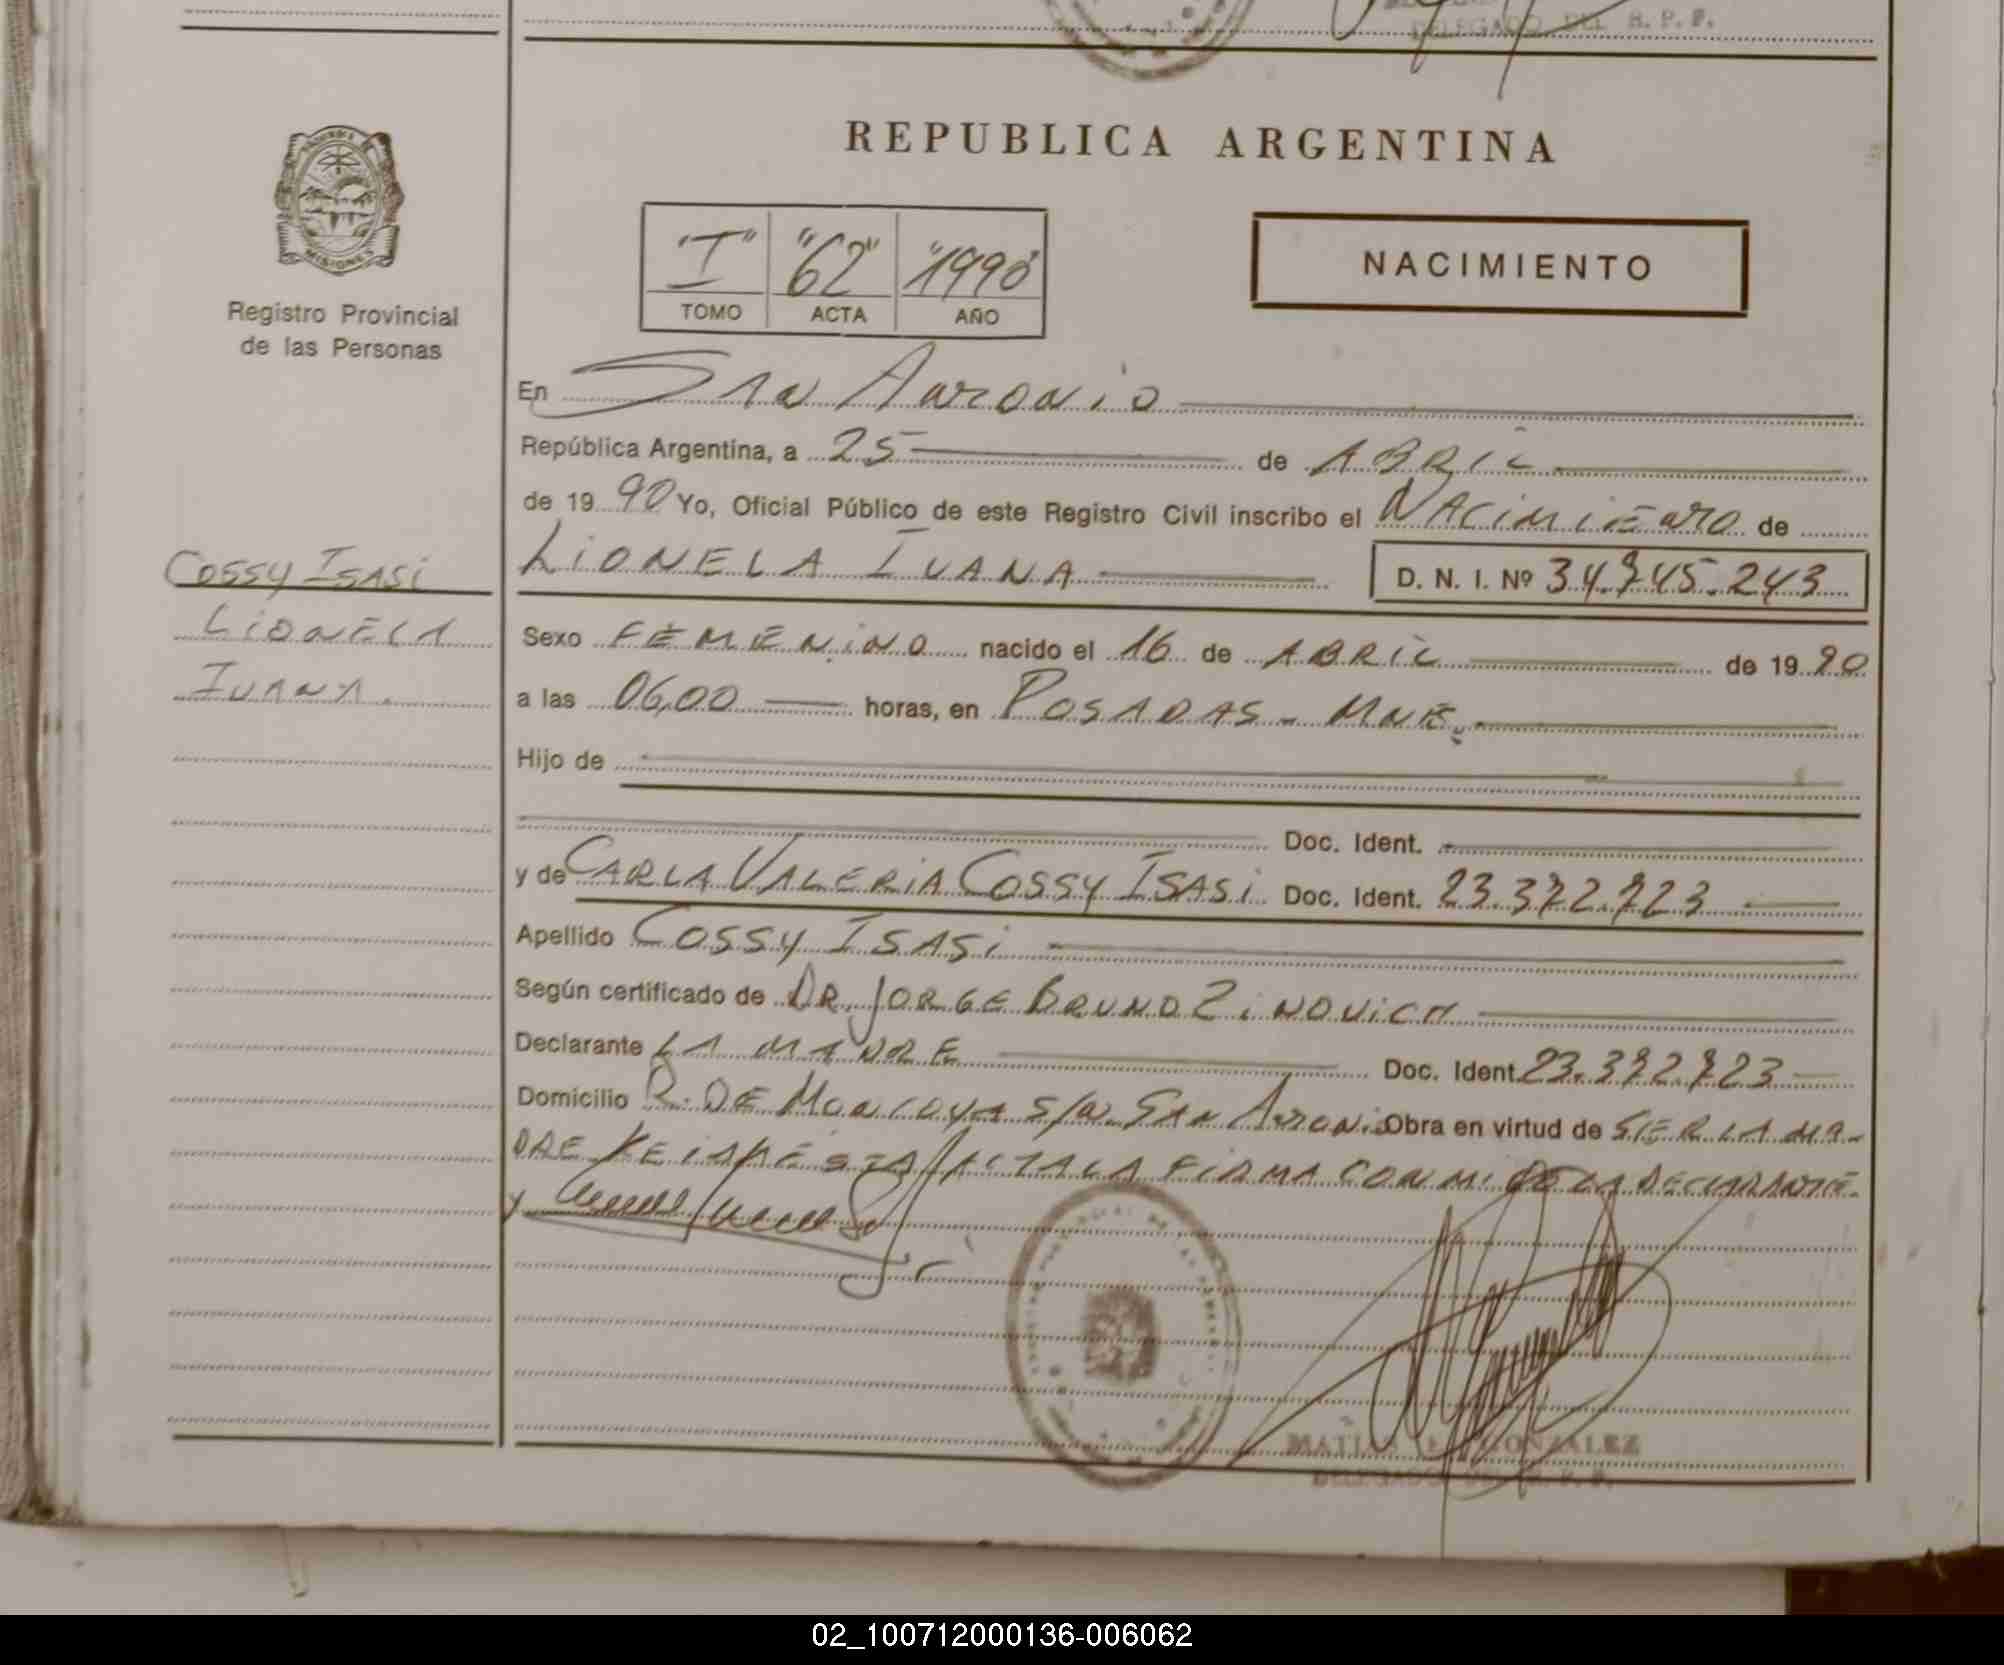 DELEGADO DEL R. P. P.
MISIONES
Registro Provincial
de las Personas
Cossy Isasi
Lionela
Ivana.
REPUBLICA ARGENTINA
"I" "62" "1990"
TOMO ACTA AÑO
NACIMIENTO
En San Antonio
República Argentina, a 25 de ABRIL
de 1990 Yo, Oficial Público de este Registro Civil inscribo el NACIMIENTO de
LIONELA IVANA D. N. I. Nº 34.745.243
Sexo FEMENINO nacido el 16 de ABRIL de 1990
a las 06,00 horas, en POSADAS - MNES.
Hijo de
Doc. Ident.
y de CARLA VALERIA COSSY ISASI Doc. Ident. 23.372.723
Apellido COSSY ISASI
Según certificado de DR. JORGE BRUNO ZINOVICH
Declarante LA MADRE Doc. Ident. 23.372.723
Domicilio R. DE MONTOYA S/N. SAN ANTONIO Obra en virtud de SER LA MA-
DRE LEIDA ESTA ACTA LA FIRMA CON MIGO LA DECLARANTE.
MATIAS GONZALEZ
DELEGADO DEL R. P. P.
02_100712000136-006062